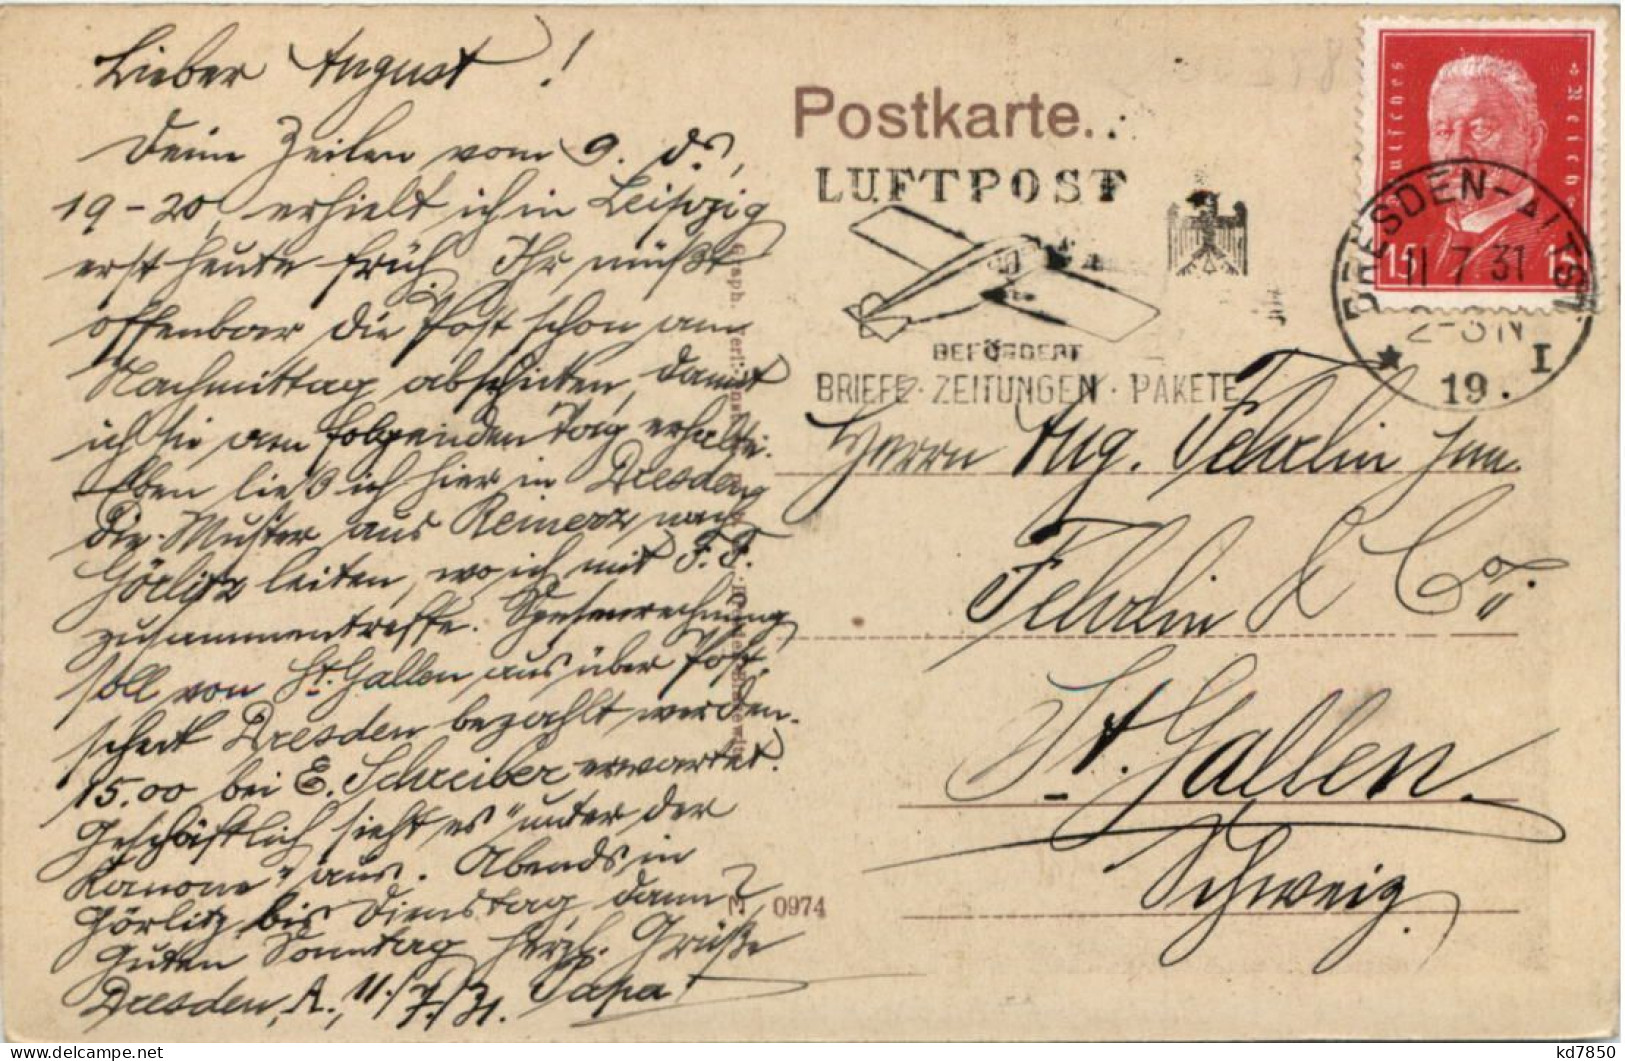 Lieber August!
Deine Zeilen vom 9. ds.,
19-20, erhielt ich in Leipzig
erst heute früh. Ihr müßt
offenbar die Post schon am
Nachmittag abschicken, damit
ich sie am folgenden Tag erhalte.
Eben ließ ich hier in Dresden
die Muster aus Reinerz nach
Görlitz leiten, wo ich mit F. F.
zusammentreffe. Spesenrechnung
soll von St. Gallen aus über Post-
scheck Dresden bezahlt werden.
15.00 bei E. Schreiber erwartet.
Geschäftlich sieht es "unter der
Kanone" aus. Abends in
Görlitz bis Dienstag dann?
Guten Sonntag herzl. Grüße
Dresden, A., 11./7./31. Papa
Postkarte.
LUFTPOST
BEFÖRDERT
BRIEFE · ZEITUNGEN · PAKETE
Deutsches Reich
15 15
DRESDEN-ALTST.
11 7 31
2-3 N
19. I
Herrn Aug. Fehrlin jun.
Fehrlin & Co.
St. Gallen.
Schweiz.
0974
kd7850